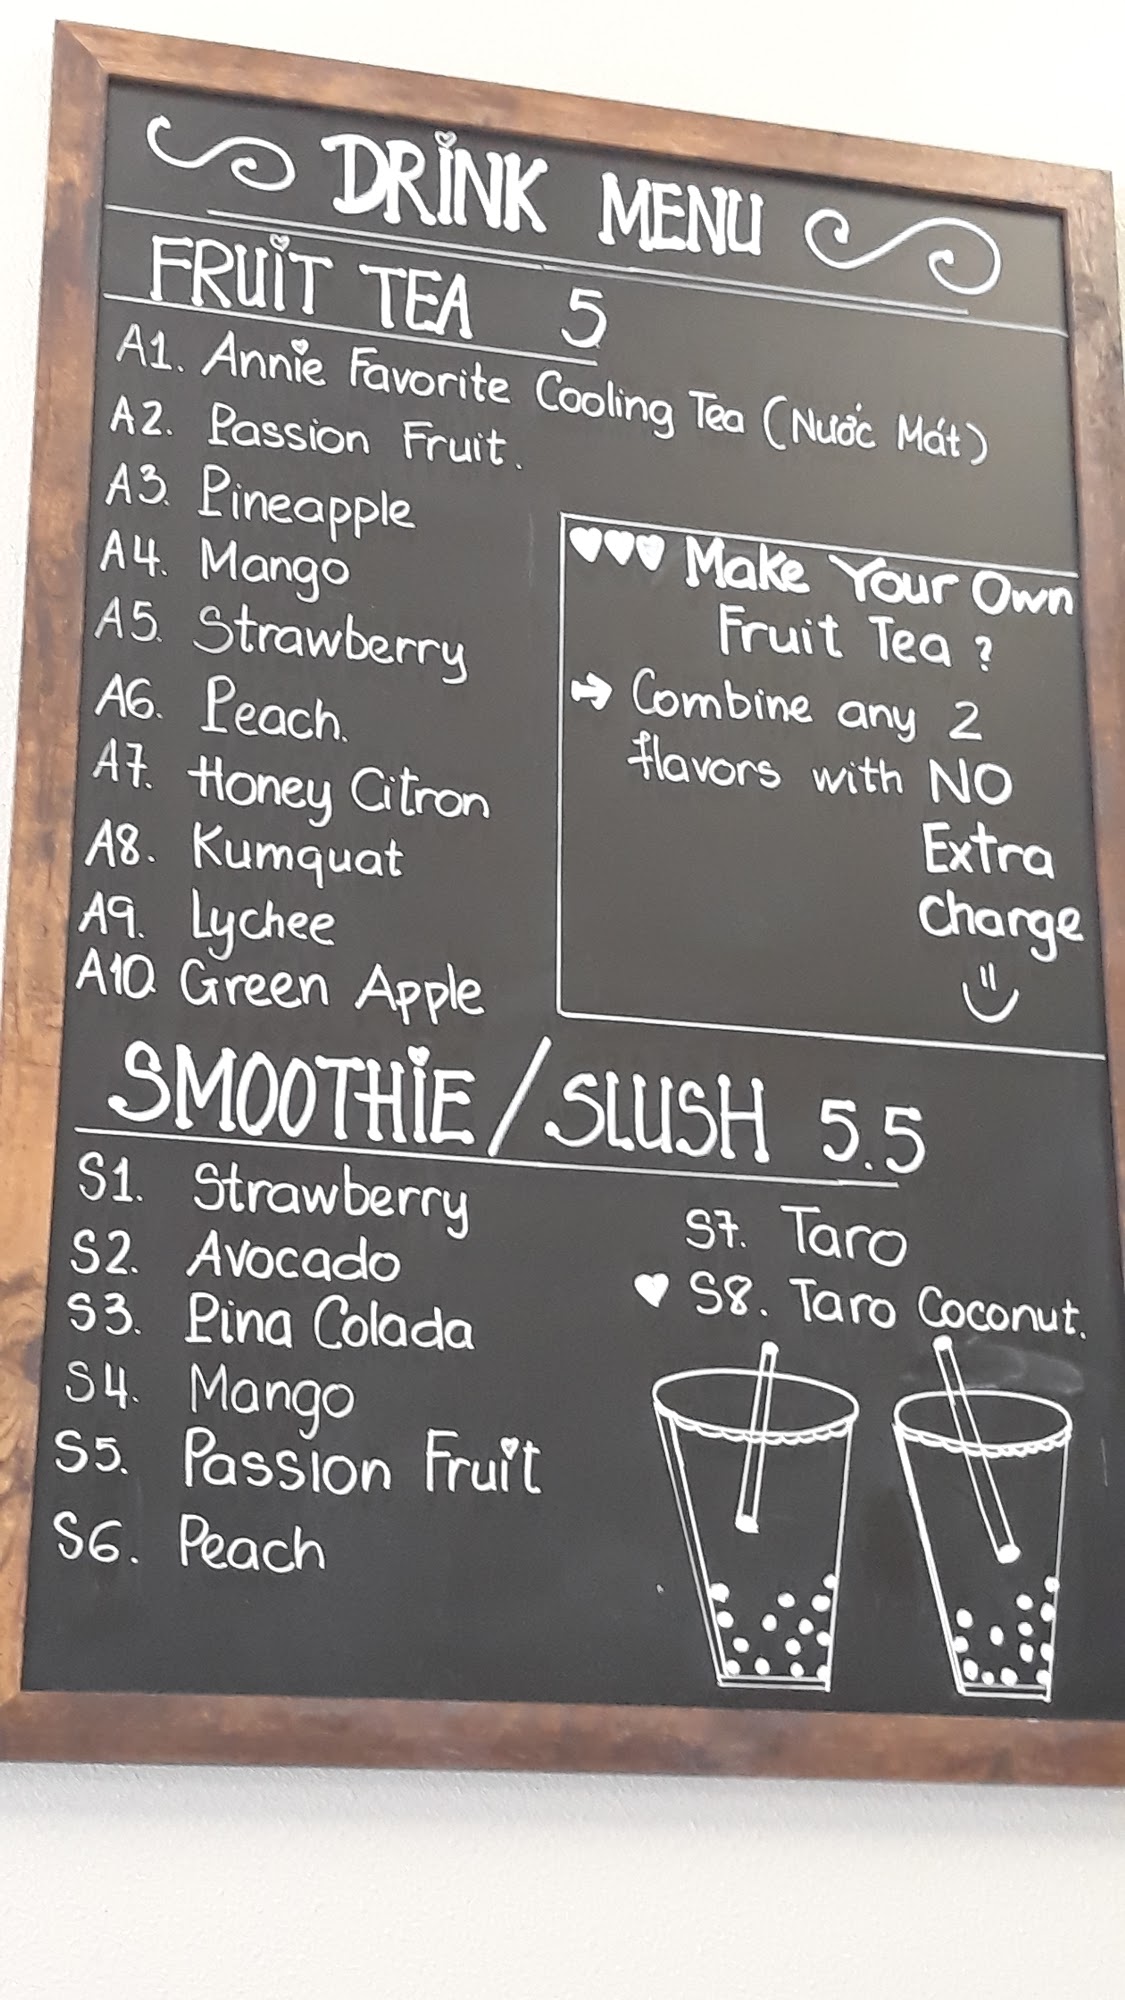 DRINK MENU
FRUIT TEA 5
A1. Annie Favorite Cooling Tea (Nước Mát)
A2. Passion Fruit.
A3. Pineapple
A4. Mango
A5. Strawberry
A6. Peach.
A7. Honey Citron
A8. Kumquat
A9. Lychee
A10. Green Apple
Make Your Own
Fruit Tea ?
Combine any 2
flavors with NO
Extra
Charge
SMOOTHIE / SLUSH 5.5
S1. Strawberry
S2. Avocado
S3. Pina Colada
S4. Mango
S5. Passion Fruit
S6. Peach
S7. Taro
S8. Taro Coconut.